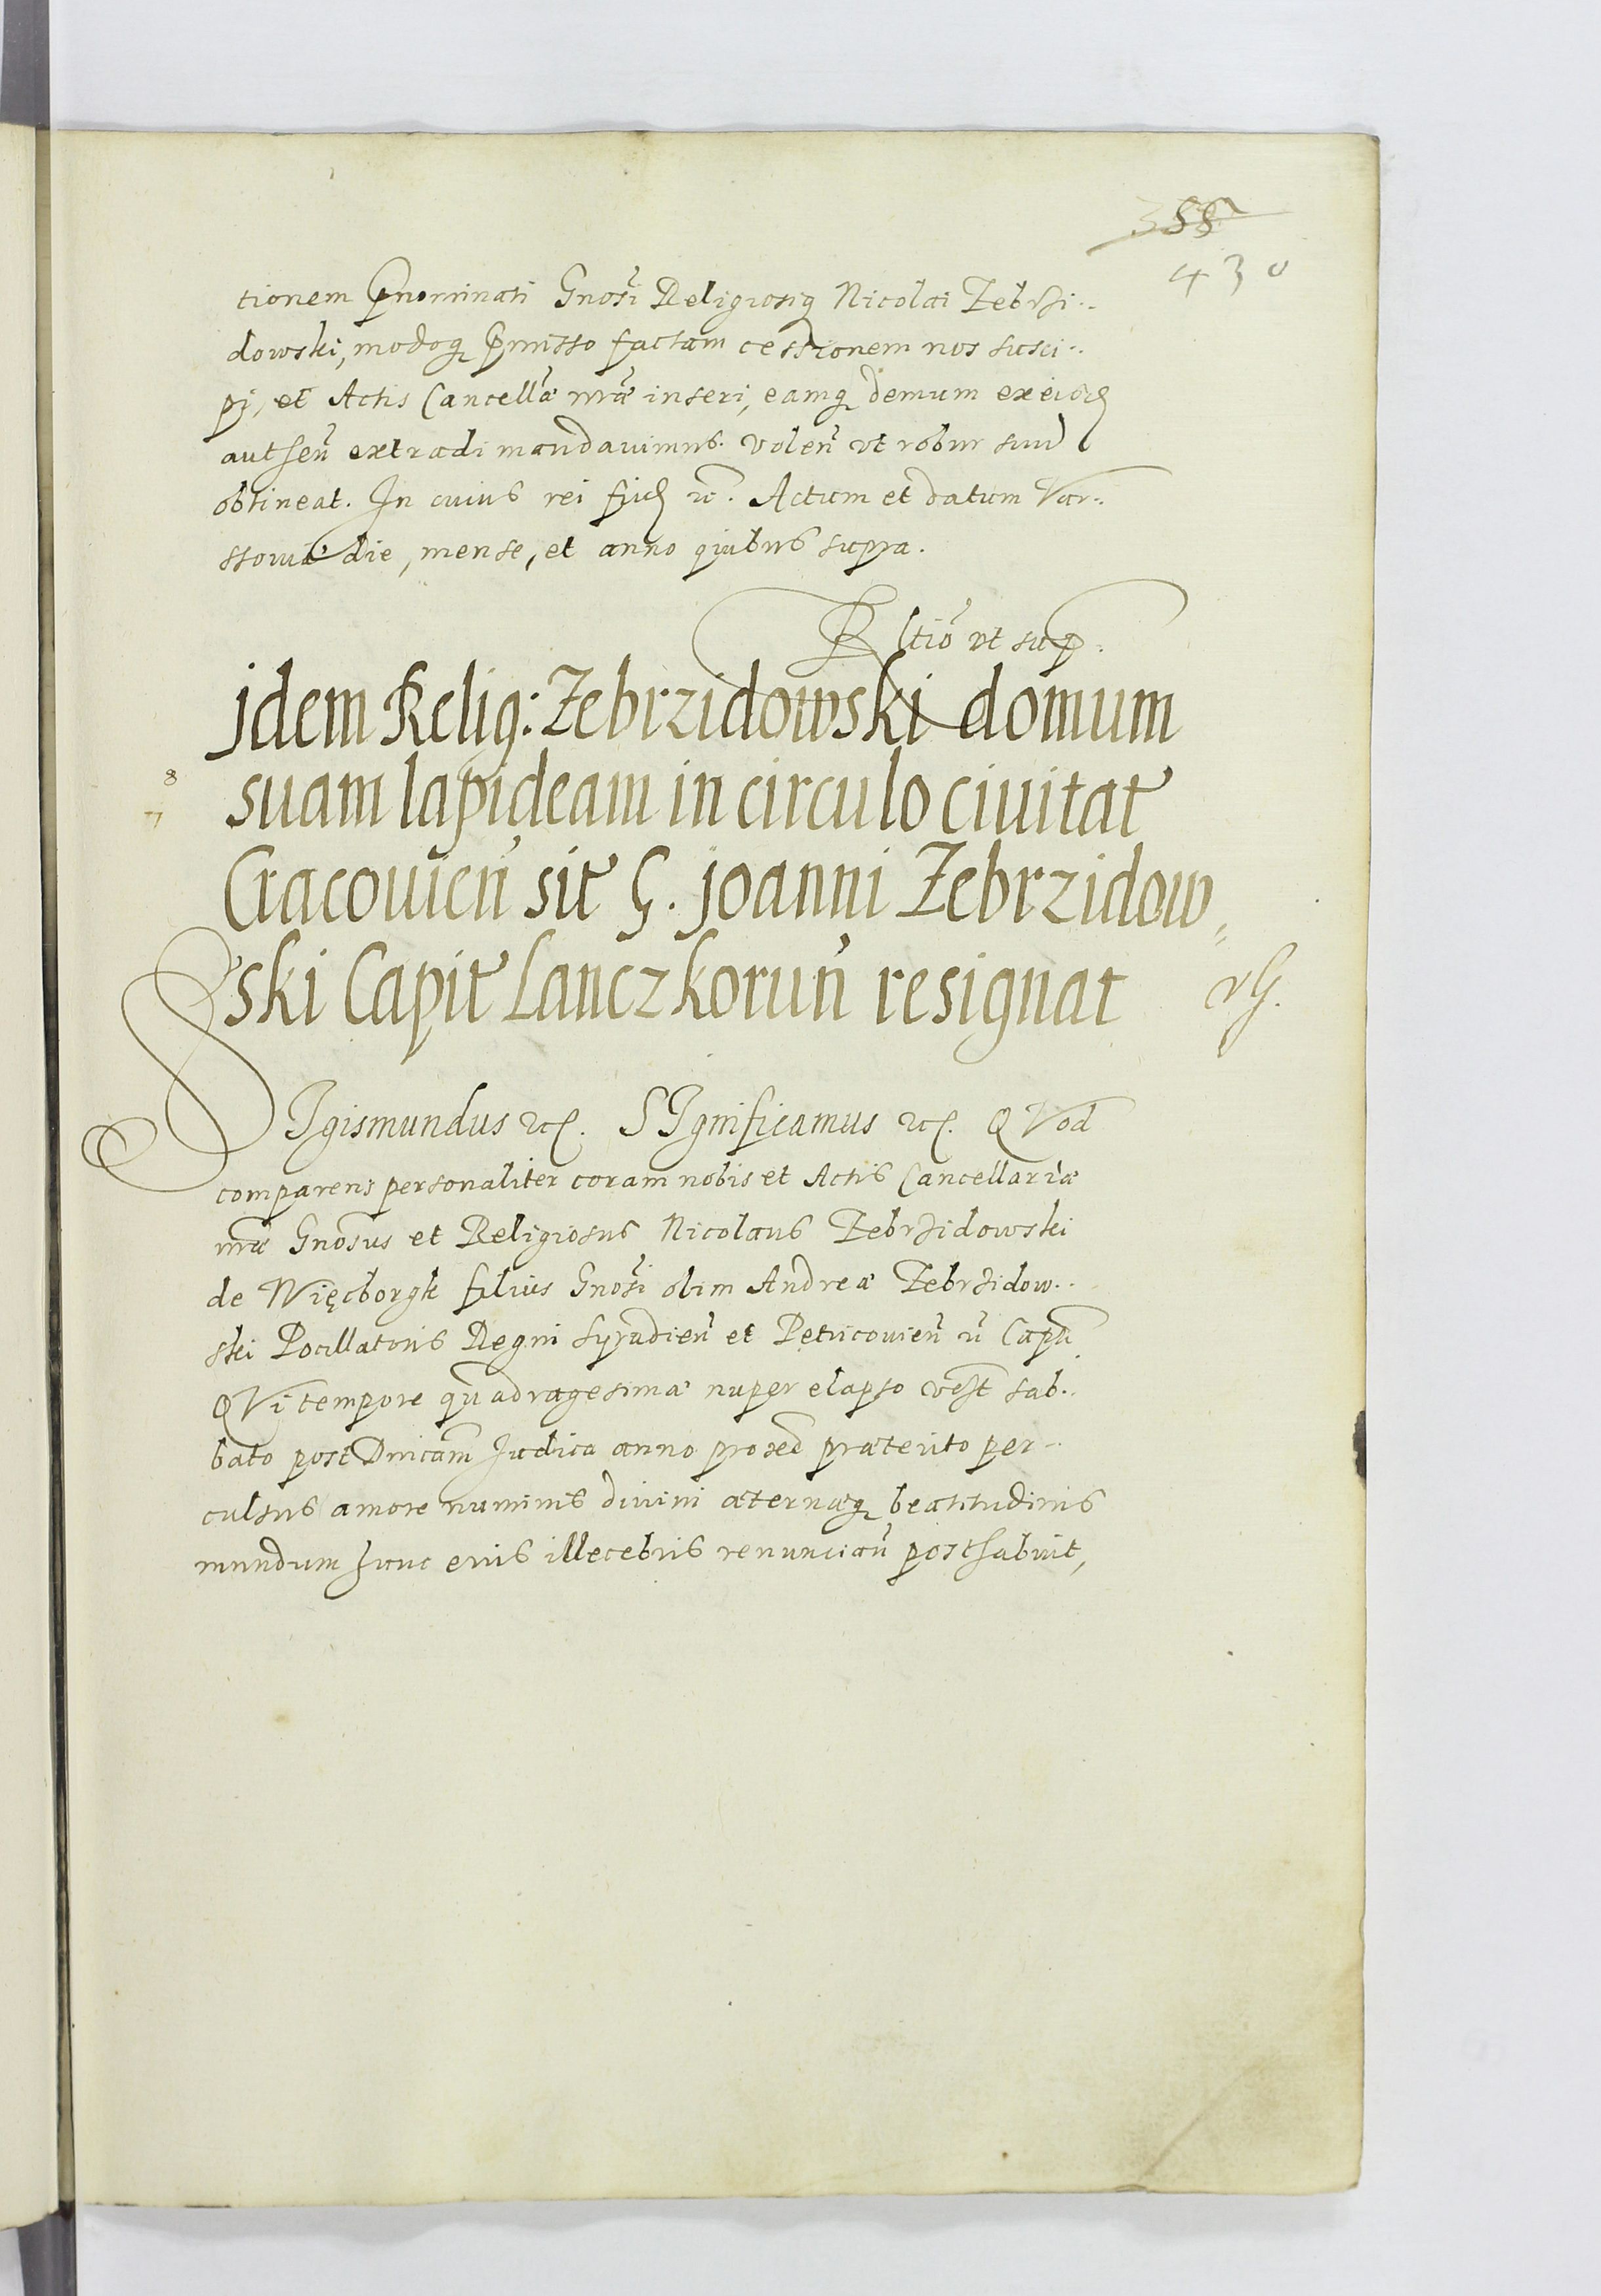 355
430
tionem pnominati Gnosi Religiosiq Nicolai Zebrzi..
dowski, modoq pmisso factam cessionem nos susci..
pj, et Actis Cancellæ nræ inseri, eamq demum ex eisd
authen extradi mandauimus. Volen vt robur suu
obtineat. In cuius rei fid etc. Actum et datum Var..
ssouiæ die, mense, et anno quibus supra.
Rltio vt sup.
Jdem Relig: Zebrzidowski domum
8
suam lapideam in circulo ciuitat
7
Cracouien sit G. Joanni Zebrzidow„
ski Capit Lanczkorun resignat
SIgismundus etc. SIgnificamus etc. QVod
comparens personaliter coram nobis et Actis Cancellariæ
nræ Gnosus et Religiosus Nicolaus Zebrzidowski
de Więcborgk filius Gnosi olim Andreæ Zebrzidow..
ski Pocillatoris Regni Syradien et Petricouien Capti
QVi tempore quadragesimæ nuper elapso sab..
bato post Dnicam Judica anno proxe præterito per..
culsus amore numinis diuini æternæq beatitudinis
mundum hunc eius illecebris renuncian posthabuit,